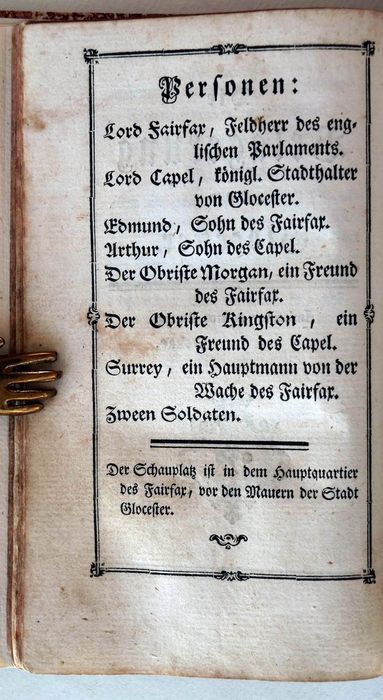 Personen:
Lord Fairfax, Feldherr des eng-
lischen Parlaments.
Lord Capel, königl. Stadthalter
von Glocester.
Edmund, Sohn des Fairfax.
Arthur, Sohn des Capel.
Der Obriste Morgan, ein Freund
des Fairfax.
Der Obriste Kingston, ein
Freund des Capel.
Surrey, ein Hauptmann von der
Wache des Fairfax.
Zween Soldaten.
Der Schauplatz ist in dem Hauptquartier
des Fairfax, vor den Mauern der Stadt
Glocester.